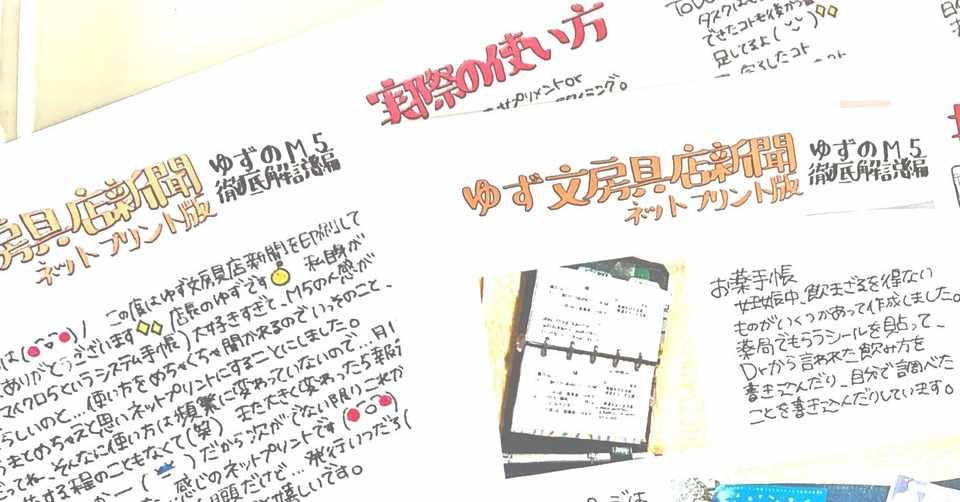 実際の使い方
サプリメントor
イニング。
ToDo
タスクは
できたコトも後から書き
足してるよ(
したコト
房具店新聞
ネットプリント版
ゆずのM5
徹底解説編
は( )ノ この度はゆず文房具店新聞を印刷して
ありがとうございます 店長のゆずです 私自身が
マイクロ5というシステム手帳)大好きすぎて、M5の人感が
らしいのと…使い方をめちゃくちゃ聞かれるのでいっそのこと、
まとめちゃえと思いネットプリントにすることにしました。
ってね、そんなに使い方は頻繁に変わっていないので…月1
する程のこともなくて(笑) また大きく変わったら
かー( )だから次が出ない限りこれが
感じのネットプリントです(
題だけど…発行いつだろ(
嬉しいです。
ゆず文房具店新聞
ネットプリント版
ゆずのM5
徹底解説編
お薬手帳
妊娠中、飲まざるを得ない
ものがいくつかあって作成しました。
薬局でもらうシールを貼って、
Drから言われた飲み方を
書き込んだり、自分で調べた
ことを書き込んだりしています。